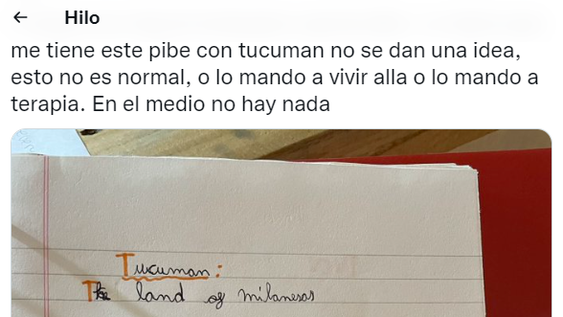 Hilo
me tiene este pibe con tucuman no se dan una idea,
esto no es normal, o lo mando a vivir alla o lo mando a
terapia. En el medio no hay nada
Tucuman:
The land of milanesas